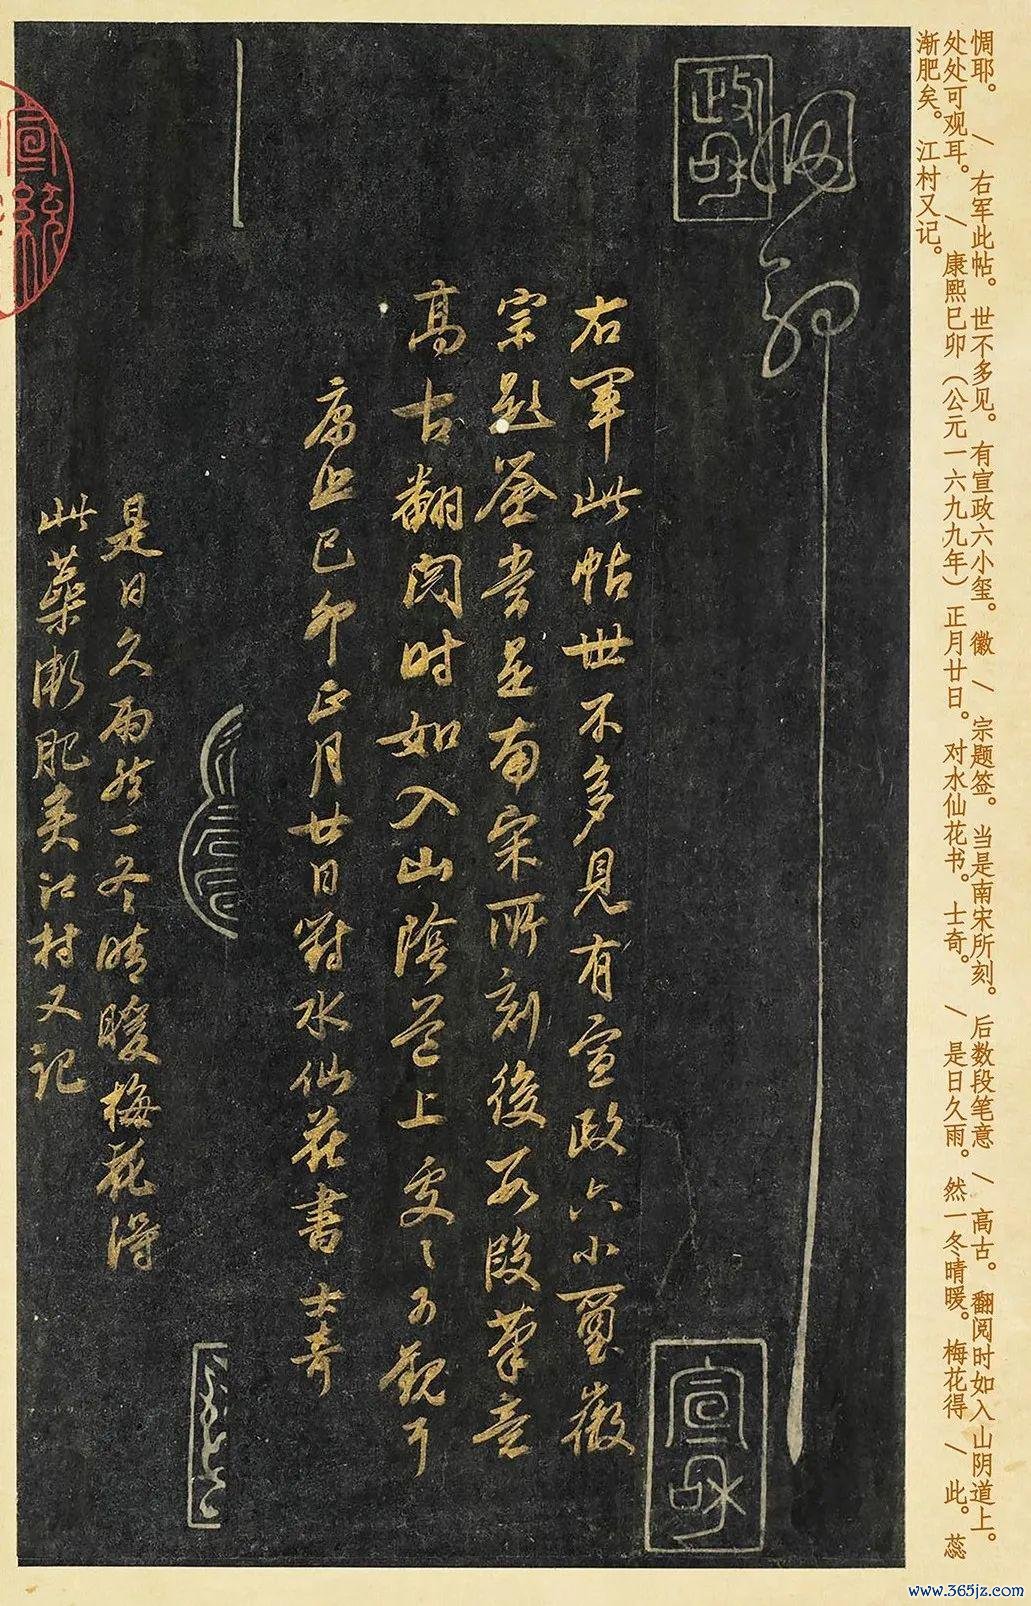 惆耶。 / 右军此帖。世不多见。有宣政六小玺。徽 / 宗题签。当是南宋所刻。后数段笔意 / 高古。翻阅时如入山阴道上。
处处可观耳。 / 康熙己卯（公元一六九九年）正月廿日。对水仙花书。士奇。 / 是日久雨。然一冬晴暖。梅花得 / 此。蕊
渐肥矣。江村又记。
惆
耶
政和
右軍此帖世不多見有宣政六小璽徽
宗題籤當是南宋所刻後數段筆意
高古翻閱時如入山陰道上處〻可觀耳
康熙己卯正月廿日對水仙花書士奇
是日久雨然一冬晴暖梅花得
此蕊漸肥矣江村又記
宣和
www.365jz.com